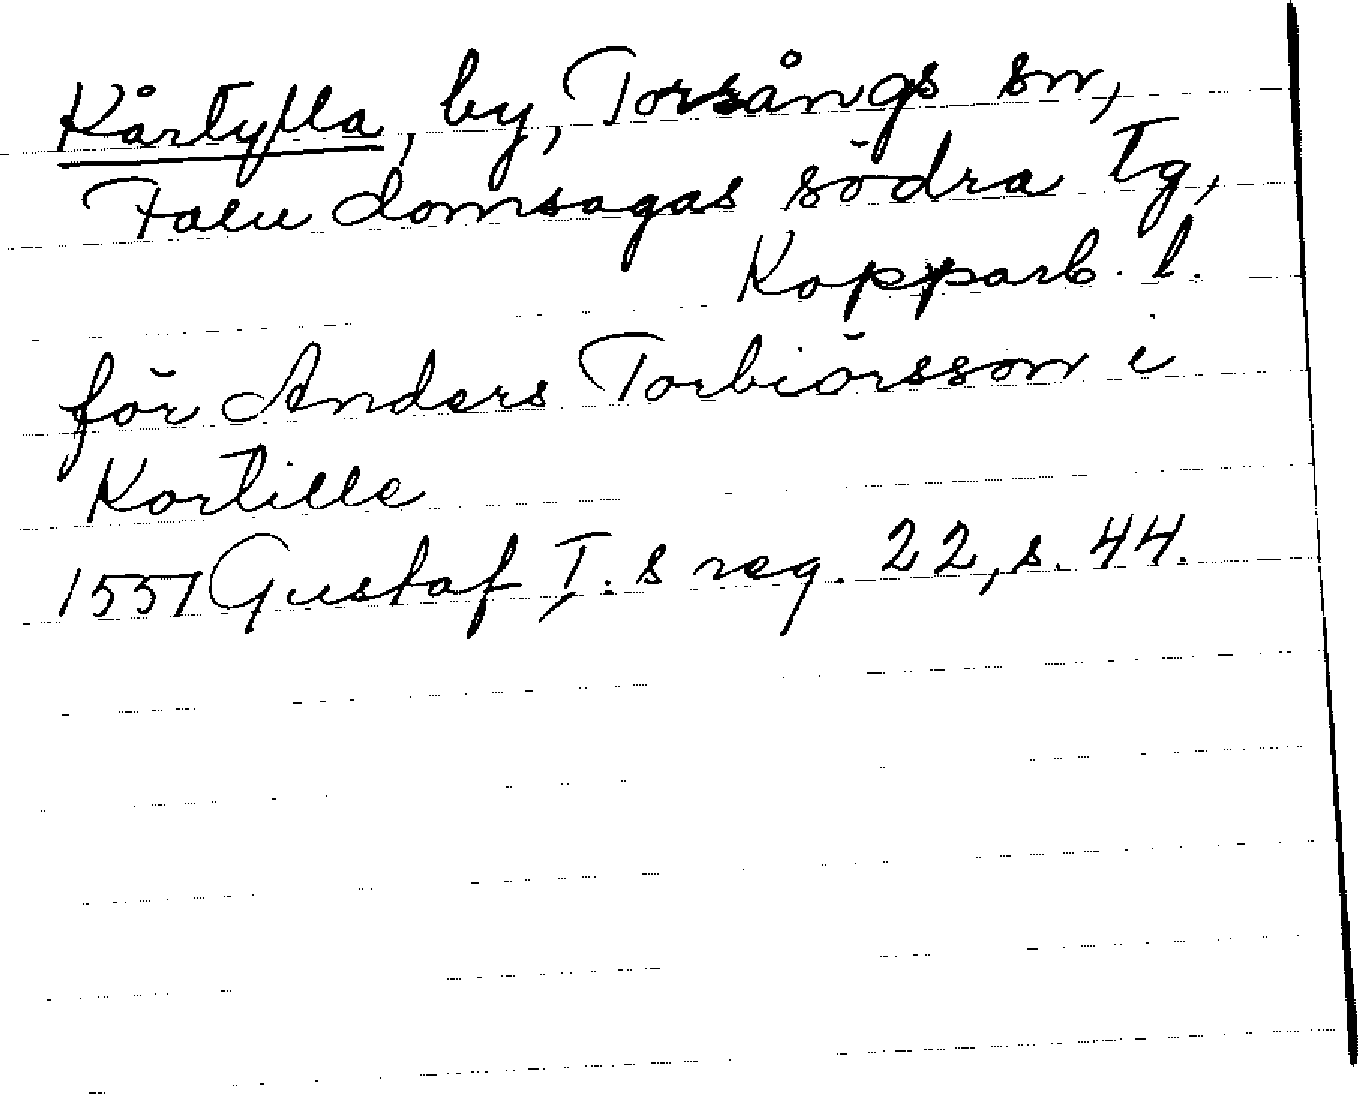 Kårtylla, by, Torsångs sn,
Falu domsagas södra tg,
Kopparb. l.
för Anders Torbiörsson i
Kortille
1551 Gustaf I.s reg. 22, s. 44.